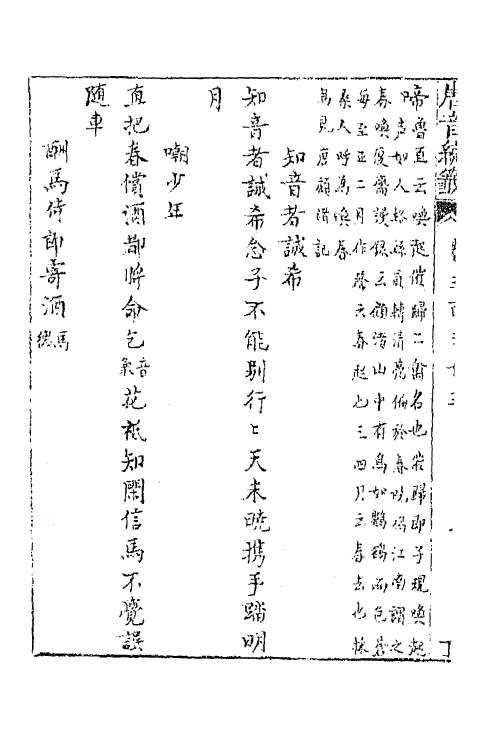 唐音統籤 卷三百
啼魯直云喚起催歸二禽名也催歸即子規喚起
声如人絡絲員轉清亮偏於春曉鳴江南謂之
春喚復齋謾錄云顧渚山中有鳥如鸜鵒而色蒼
每至正二月作聲云春起也三四月云春去也採
茶人呼為喚春
鳥見唐顧渚記
知音者誠希
知音者誠希念子不能別行〻天未曉携手踏明
月
嘲少年
直把春償酒都將命乞音氣花祇知閑信馬不覺誤
隨車
酬馬侍郎寄酒馬總